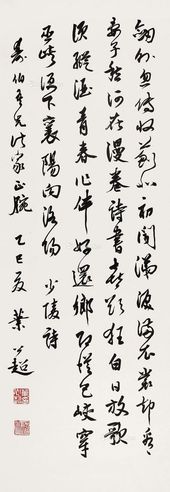 劍外忽傳收薊北初聞涕淚滿衣裳却看
妻子愁何在漫卷詩書喜欲狂白日放歌
須縱酒青春作伴好還鄉即從巴峽穿
巫峽便下襄陽向洛陽 少陵詩
伯吾兄法家正腕 乙巳夏 葉公超